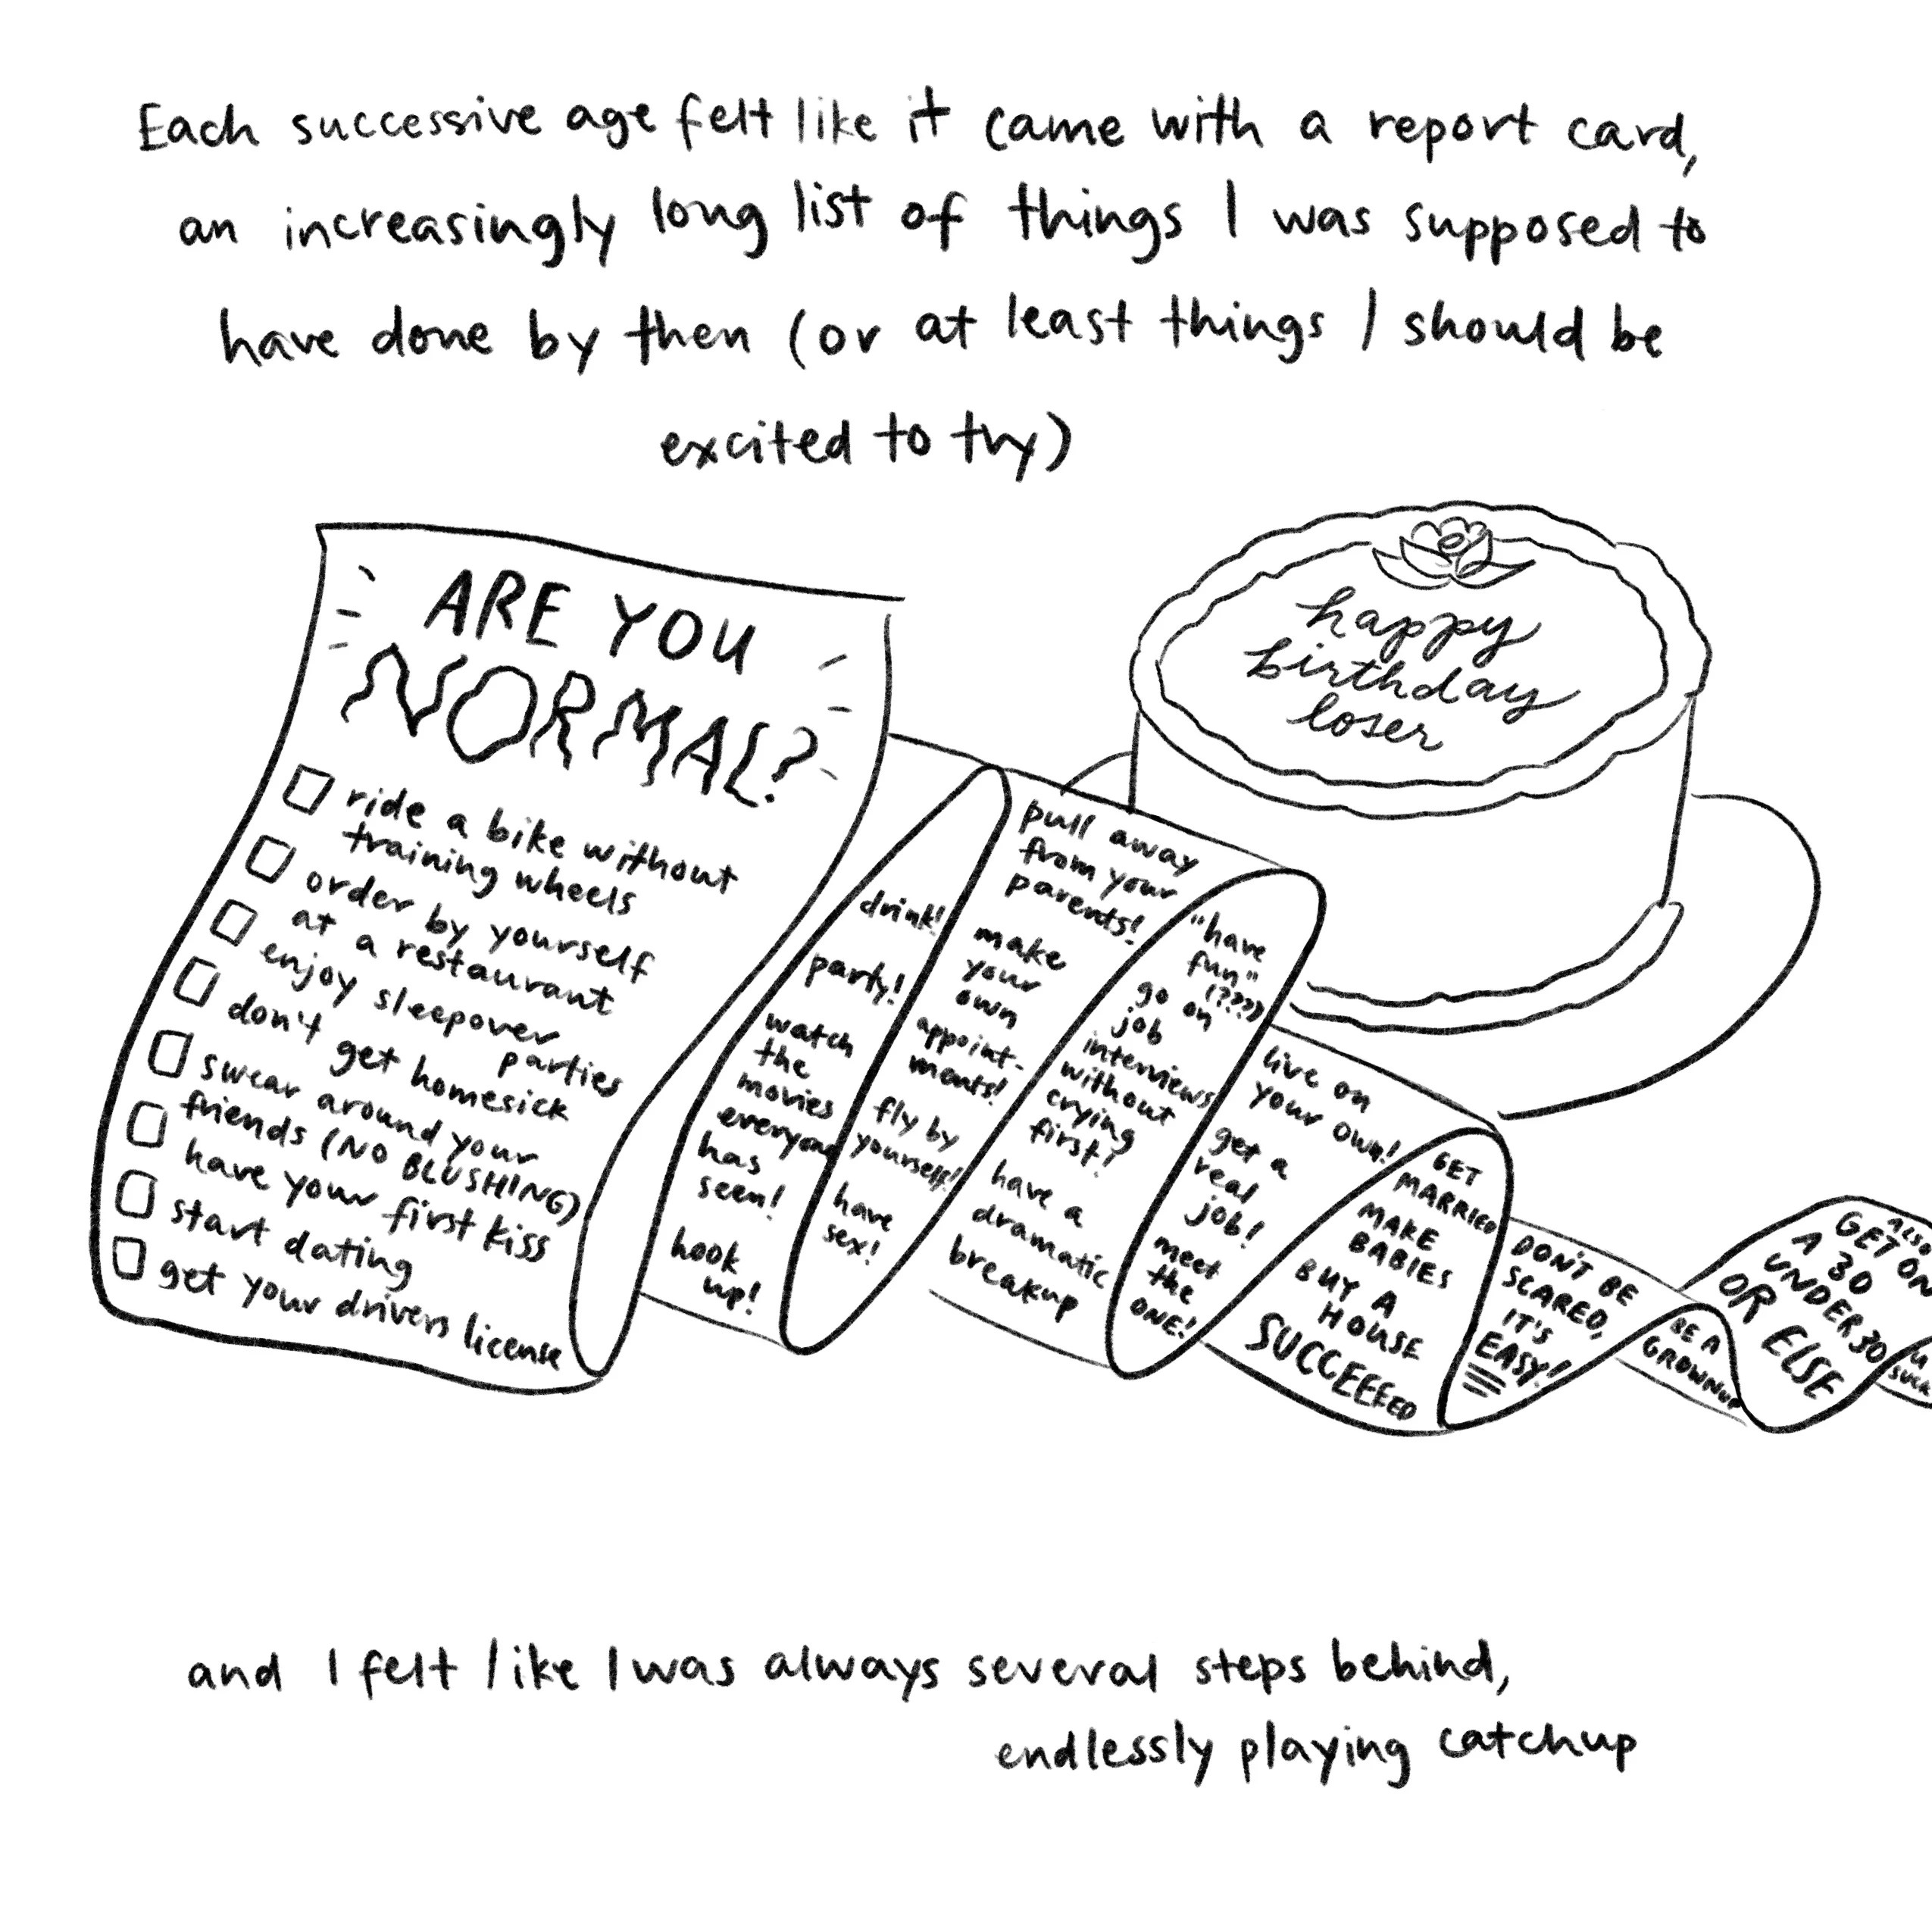 Each successive age felt like it came with a report card,
an increasingly long list of things I was supposed to
have done by then (or at least things I should be
excited to try)
ARE YOU
NORMAL?
ride a bike without
training wheels
order by yourself
at a restaurant
enjoy sleepover
parties
don't get homesick
swear around your
friends (NO BLUSHING)
have your first kiss
start dating
get your drivers license
drink!
party!
watch
the
movies
everyone
has
seen!
hook
up!
pull away
from your
parents!
make
your
own
appoint-
ments!
fly by
yourself!
have
sex!
"have
fun"
(????)
go on
job
interviews
without
crying
first!
have a
dramatic
breakup
live on
your own!
get a
real
job!
meet
the
ONE!
GET
MARRIED
MAKE
BABIES
BUY A
HOUSE
SUCCEEEED
DON'T BE
SCARED,
IT'S
EASY!
BE A
GROWNUP
ALSO
GET ON
A 30
UNDER 30
OR ELSE
happy
birthday
loser
and I felt like I was always several steps behind,
endlessly playing catchup